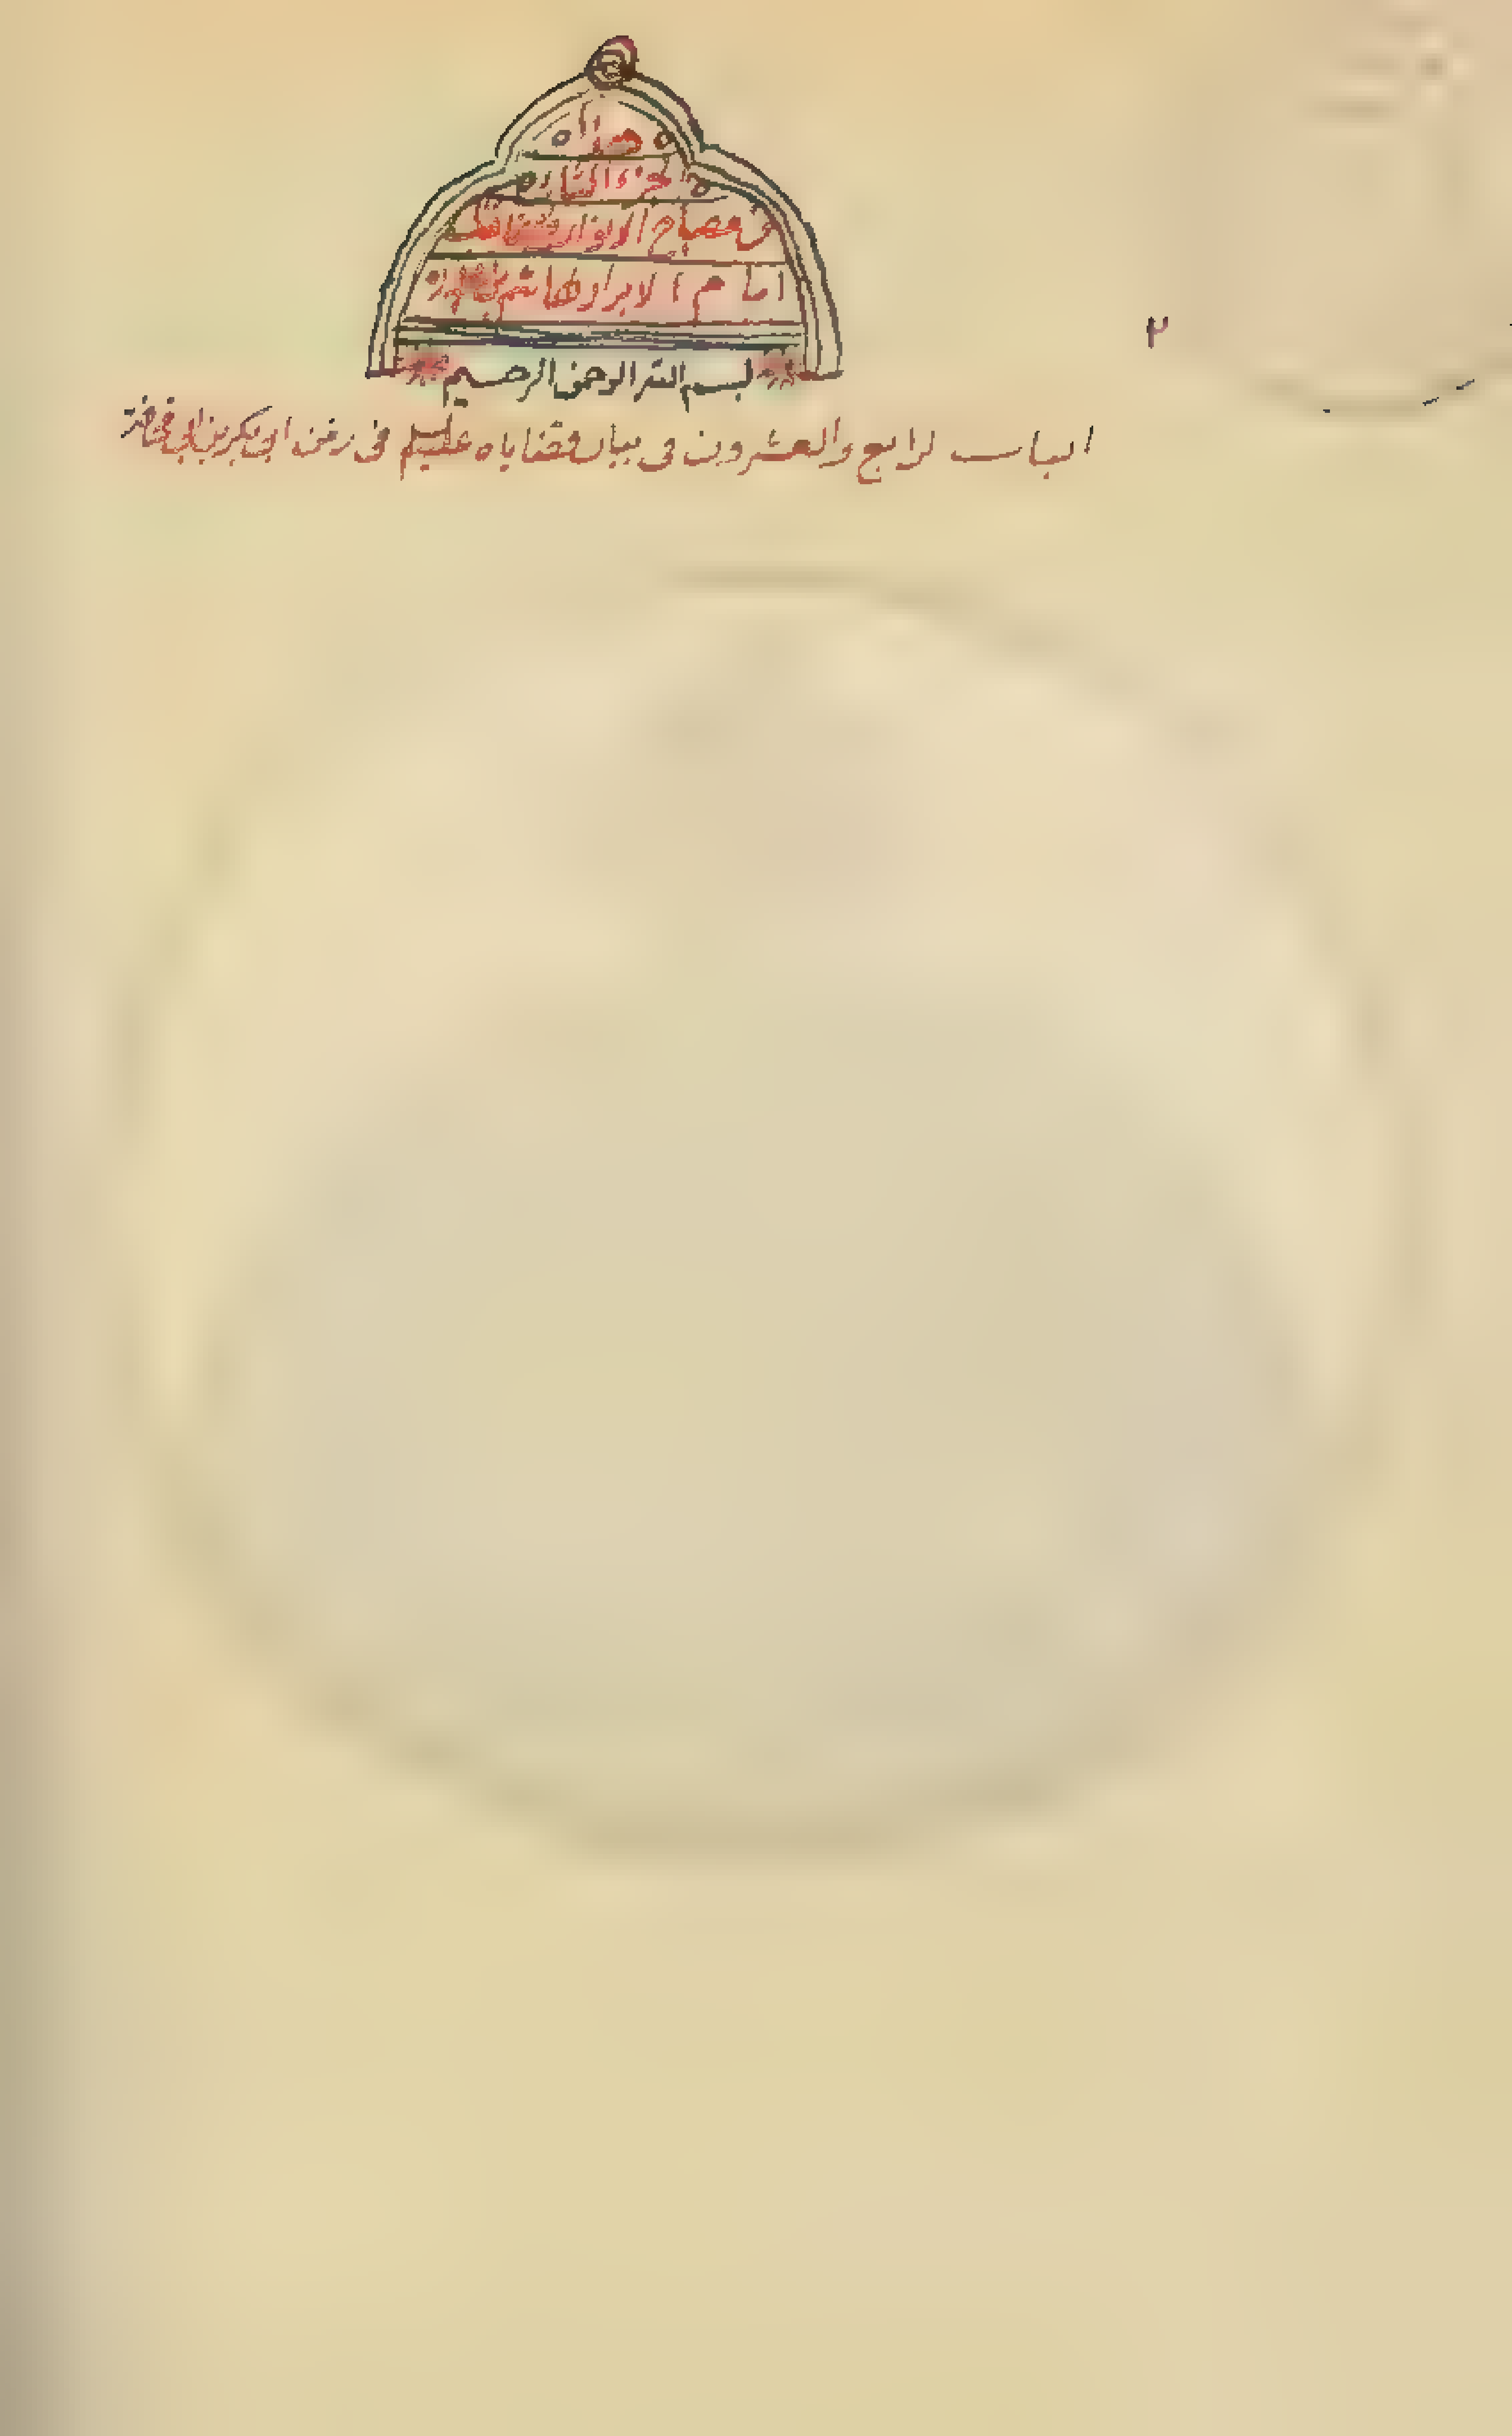 هذا
الجزء الثاني
من مصباح الانوار فضائل
امام الابرار
٢
بسم الله الرحمن الرحيم
الباب الرابع والعشرون في بيان قضاياه عليه السلم في زمن ابي بكر بن ابي قحافة